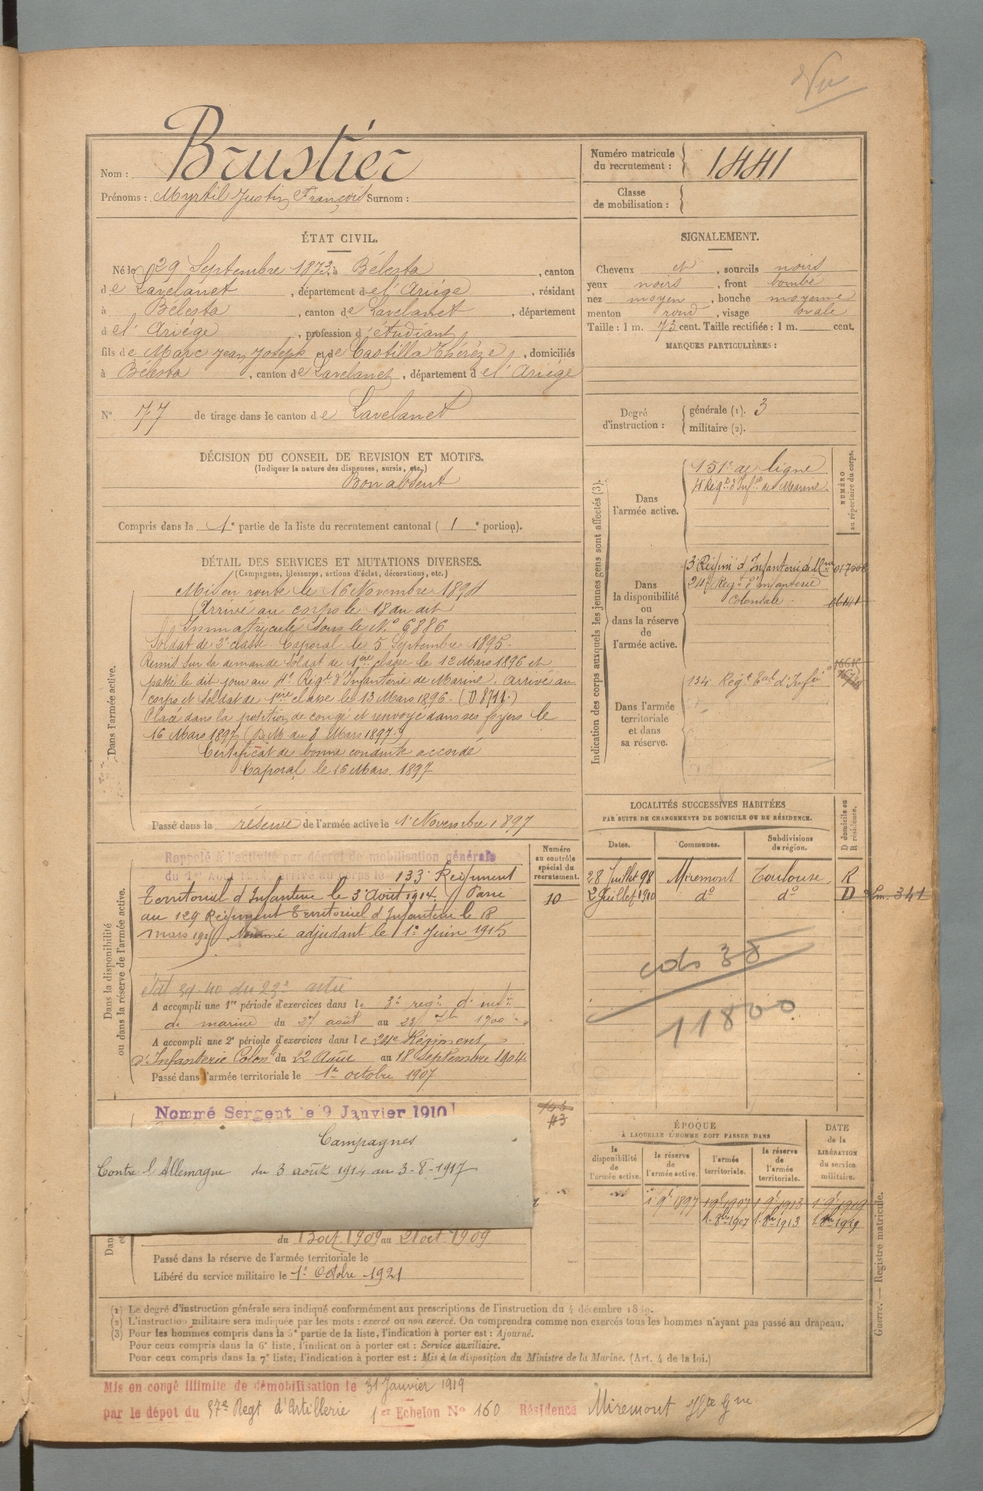 Vu
Nom : Brustier
Prénoms : Myrtil Justin François Surnom :
Numéro matricule
du recrutement : 1441
Classe
de mobilisation :
ÉTAT CIVIL.
Né le 29 Septembre 1873, à Bélesta, canton
de Lavelanet, département de l'Ariége, résidant
à Bélesta, canton de Lavelanet, département
de l'Ariége, profession d'étudiant,
fils de Marc Jean Joseph et de Castilla Thérèze, domiciliés
à Bélesta, canton de Lavelanet, département de l'Ariége
N° 77 de tirage dans le canton de Lavelanet
SIGNALEMENT.
Cheveux et, sourcils noirs
yeux noirs, front bombé
nez moyen, bouche moyenne
menton rond, visage ovale
Taille : 1 m. 72 cent. Taille rectifiée : 1 m. cent.
MARQUES PARTICULIÈRES :
Degré
d'instruction :
générale (1). 3
militaire (2).
DÉCISION DU CONSEIL DE REVISION ET MOTIFS.
(Indiquer la nature des dispenses, sursis, etc.)
Bon absent
Compris dans la 1e partie de la liste du recrutement cantonal ( 1e portion).
DÉTAIL DES SERVICES ET MUTATIONS DIVERSES.
(Campagnes, blessures, actions d'éclat, décorations, etc.)
Dans l'armée active.
Mis en route le 16 Novembre 1894
Arrivé au corps le 18 du dit
Immatriculé sous le N° 6886
Soldat de 2e classe. Caporal le 5 Septembre 1895.
Remis sur sa demande soldat de 1ère classe le 12 Mars 1896 et
passé le dit jour au 4e Regt d'Infanterie de Marine. Arrivé au
corps et soldat de 1ère classe le 13 Mars 1896. (D 8711.)
Placé dans la position de congé et renvoyé dans ses foyers le
16 Mars 1897. (D.M. du 2 Mars 1897.)
Certificat de bonne conduite accordé
Caporal le 16 Mars 1897
Passé dans la réserve de l'armée active le 1er Novembre 1897
Indication des corps auxquels les jeunes gens sont affectés (3).
NUMÉRO
au répertoire du corps.
Dans
l'armée active.
151e de ligne
4e Regt d'Infie de Marine.
Dans
la disponibilité
ou
dans la réserve
de
l'armée active.
3e Régimt d'Infanterie de Mne
24e Regt d'Infanterie
Coloniale.
Dans l'armée
territoriale
et dans
sa réserve.
134 Regt Tal d'Infie
LOCALITÉS SUCCESSIVES HABITÉES
PAR SUITE DE CHANGEMENTS DE DOMICILE OU DE RÉSIDENCE.
Dates. Communes. Subdivisions de région. D domicile ou R résidence.
28 Juillet 98 Miremont Toulouse R
2 Juillet 1910 do do D
11800
Numéro
au contrôle
spécial du
recrutement.
10
Dans la disponibilité
ou dans la réserve de l'armée active.
Rappelé à l'activité par décret de mobilisation générale
du 1er Août 1914, arrivé au corps le 133e Régiment
Territorial d'Infanterie le 3 Août 1914. Passé
au 129 Régiment Territorial d'Infanterie le 18
mars 1915 Nommé adjudant le 1er Juin 1915
A accompli une 1re période d'exercices dans le 3e regt d'infie
de marine du 27 août au 23 7bre 1900.
A accompli une 2e période d'exercices dans le 24e Régiment
d'Infanterie Colonle du 22 Août au 18 Septembre 1904
Passé dans l'armée territoriale le 1er octobre 1907
Nommé Sergent le 9 Janvier 1910
Campagnes
Contre l'Allemagne du 3 août 1914 au 3-8-1917
Passé dans la réserve de l'armée territoriale le
Libéré du service militaire le 1er Octobre 1921
ÉPOQUE
À LAQUELLE L'HOMME DOIT PASSER DANS
DATE
de la
LIBÉRATION
du service
militaire.
la
disponibilité
de
l'armée active.
la réserve
de
l'armée active.
l'armée
territoriale.
la réserve
de
l'armée
territoriale.
1 9bre 1897 1 9bre 1907 1 9bre 1913 1 9bre 1919
1 8bre 1907 1 8bre 1913
(1) Le degré d'instruction générale sera indiqué conformément aux prescriptions de l'instruction du 4 décembre 1889.
(2) L'instruction militaire sera indiquée par les mots : exercé ou non exercé. On comprendra comme non exercés tous les hommes n'ayant pas passé au drapeau.
(3) Pour les hommes compris dans la 5e partie de la liste, l'indication à porter est : Ajourné.
Pour ceux compris dans la 6e liste, l'indication à porter est : Service auxiliaire.
Pour ceux compris dans la 7e liste, l'indication à porter est : Mis à la disposition du Ministre de la Marine. (Art. 4 de la loi.)
Guerre. — Registre matricule.
Mis en congé illimité de démobilisation le 31 Janvier 1919
par le dépôt du 57e Regt d'Artillerie 1er Echelon N° 160 Résidence Miremont Hte Gne